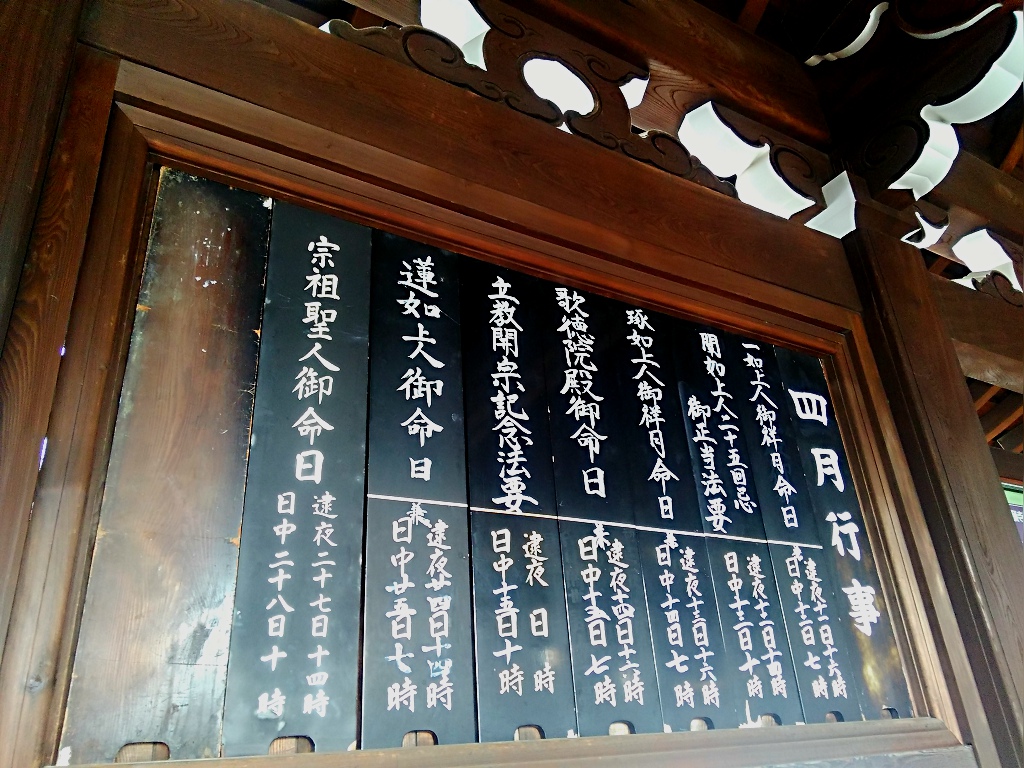 四月行事
一如上人御祥月命日
兼
逮夜十一日十六時
日中十二日七時
明如上人二十五回忌
御正当法要
逮夜十一日十四時
日中十二日十時
琢如上人御祥月命日
兼
逮夜十三日十六時
日中十四日七時
歌徳院殿御命日
兼
逮夜十四日十六時
日中十五日七時
立教開宗記念法要
逮夜 日 時
日中十五日十時
蓮如上人御命日
兼
逮夜廿四日十四時
日中廿五日七時
宗祖聖人御命日
逮夜二十七日十四時
日中二十八日十時